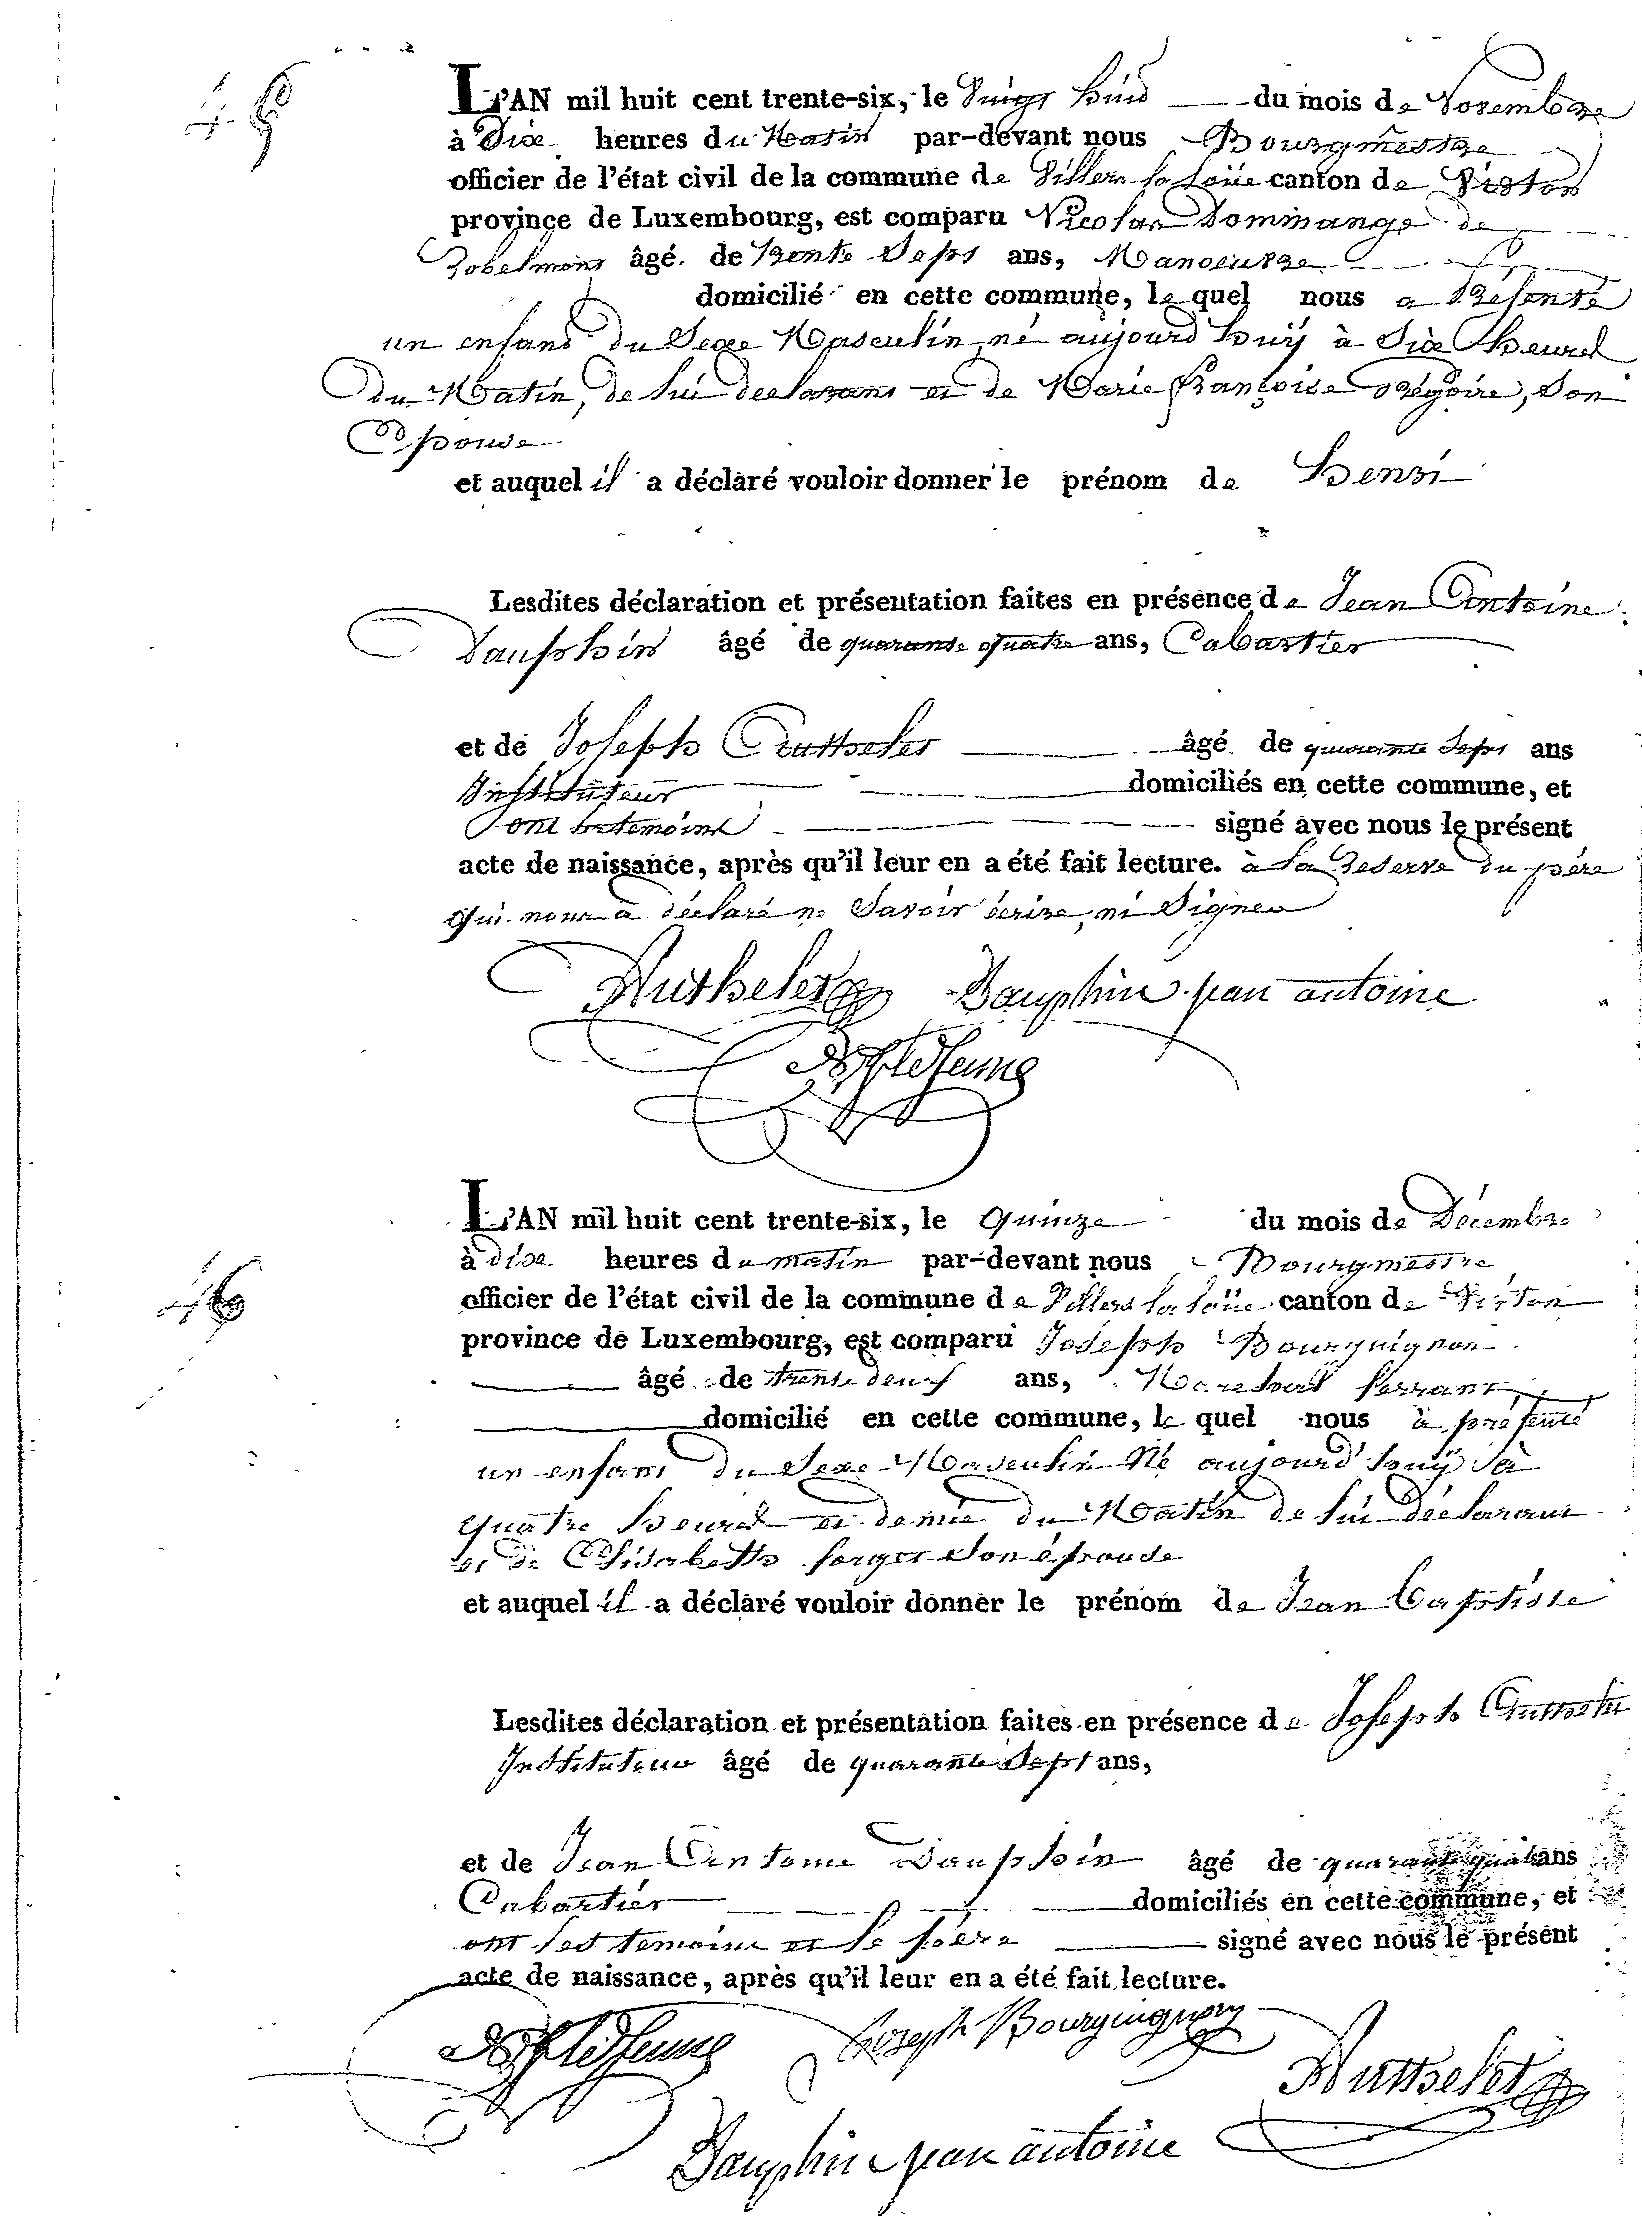 45
L'AN mil huit cent trente-six, le Vingt huit du mois de Novembre
à Dix heures du Matin par-devant nous Bourgmestre
officier de l'état civil de la commune de Villers la Loüe canton de Virton
province de Luxembourg, est comparu Nicolas Dominange de
Robelmont âgé de trente Sept ans, Manoeuvre
domicilié en cette commune, le quel nous a Présenté
un enfant du Sexe Masculin, né aujourd huÿ à Six heures
du Matin, de lui declarant et de Marie Françoise Grégoire, Son
Epouse
et auquel il a déclaré vouloir donner le prénom de Henri
Lesdites déclaration et présentation faites en présence de Jean Antoine
Dauphin âgé de quarante quatre ans, Cabartier
et de Joseph Authelet âgé de quarante Sept ans
Instituteur domiciliés en cette commune, et
ont les temoins signé avec nous le présent
acte de naissance, après qu'il leur en a été fait lecture. à la Reserve du père
qui nous a déclaré ne Savoir écrire, ni Signer
Authelet Dauphin jean antoine
46
L'AN mil huit cent trente-six, le Quinze du mois de Décembre
à dix heures du matin par-devant nous Bourgmestre
officier de l'état civil de la commune de Villers la Loüe canton de Virton
province de Luxembourg, est comparu Joseph Bourguignon
âgé de trente deux ans, Marechal ferrant
domicilié en cette commune, le quel nous à présenté
un enfant du Sexe Masculin Né aujourd'huÿ à
quatre heures et demie du Matin de lui déclarant
et de Elisabeth forget Son épouse
et auquel il a déclaré vouloir donner le prénom de Jean Baptiste
Lesdites déclaration et présentation faites en présence de Joseph Authelet
Instituteur âgé de quarante Sept ans,
et de Jean Antoine Dauphin âgé de quarante quatre ans
Cabartier domiciliés en cette commune, et
ont les temoins et le père signé avec nous le présent
acte de naissance, après qu'il leur en a été fait lecture.
Joseph Bourguignon
Authelet
Dauphin jean antoine